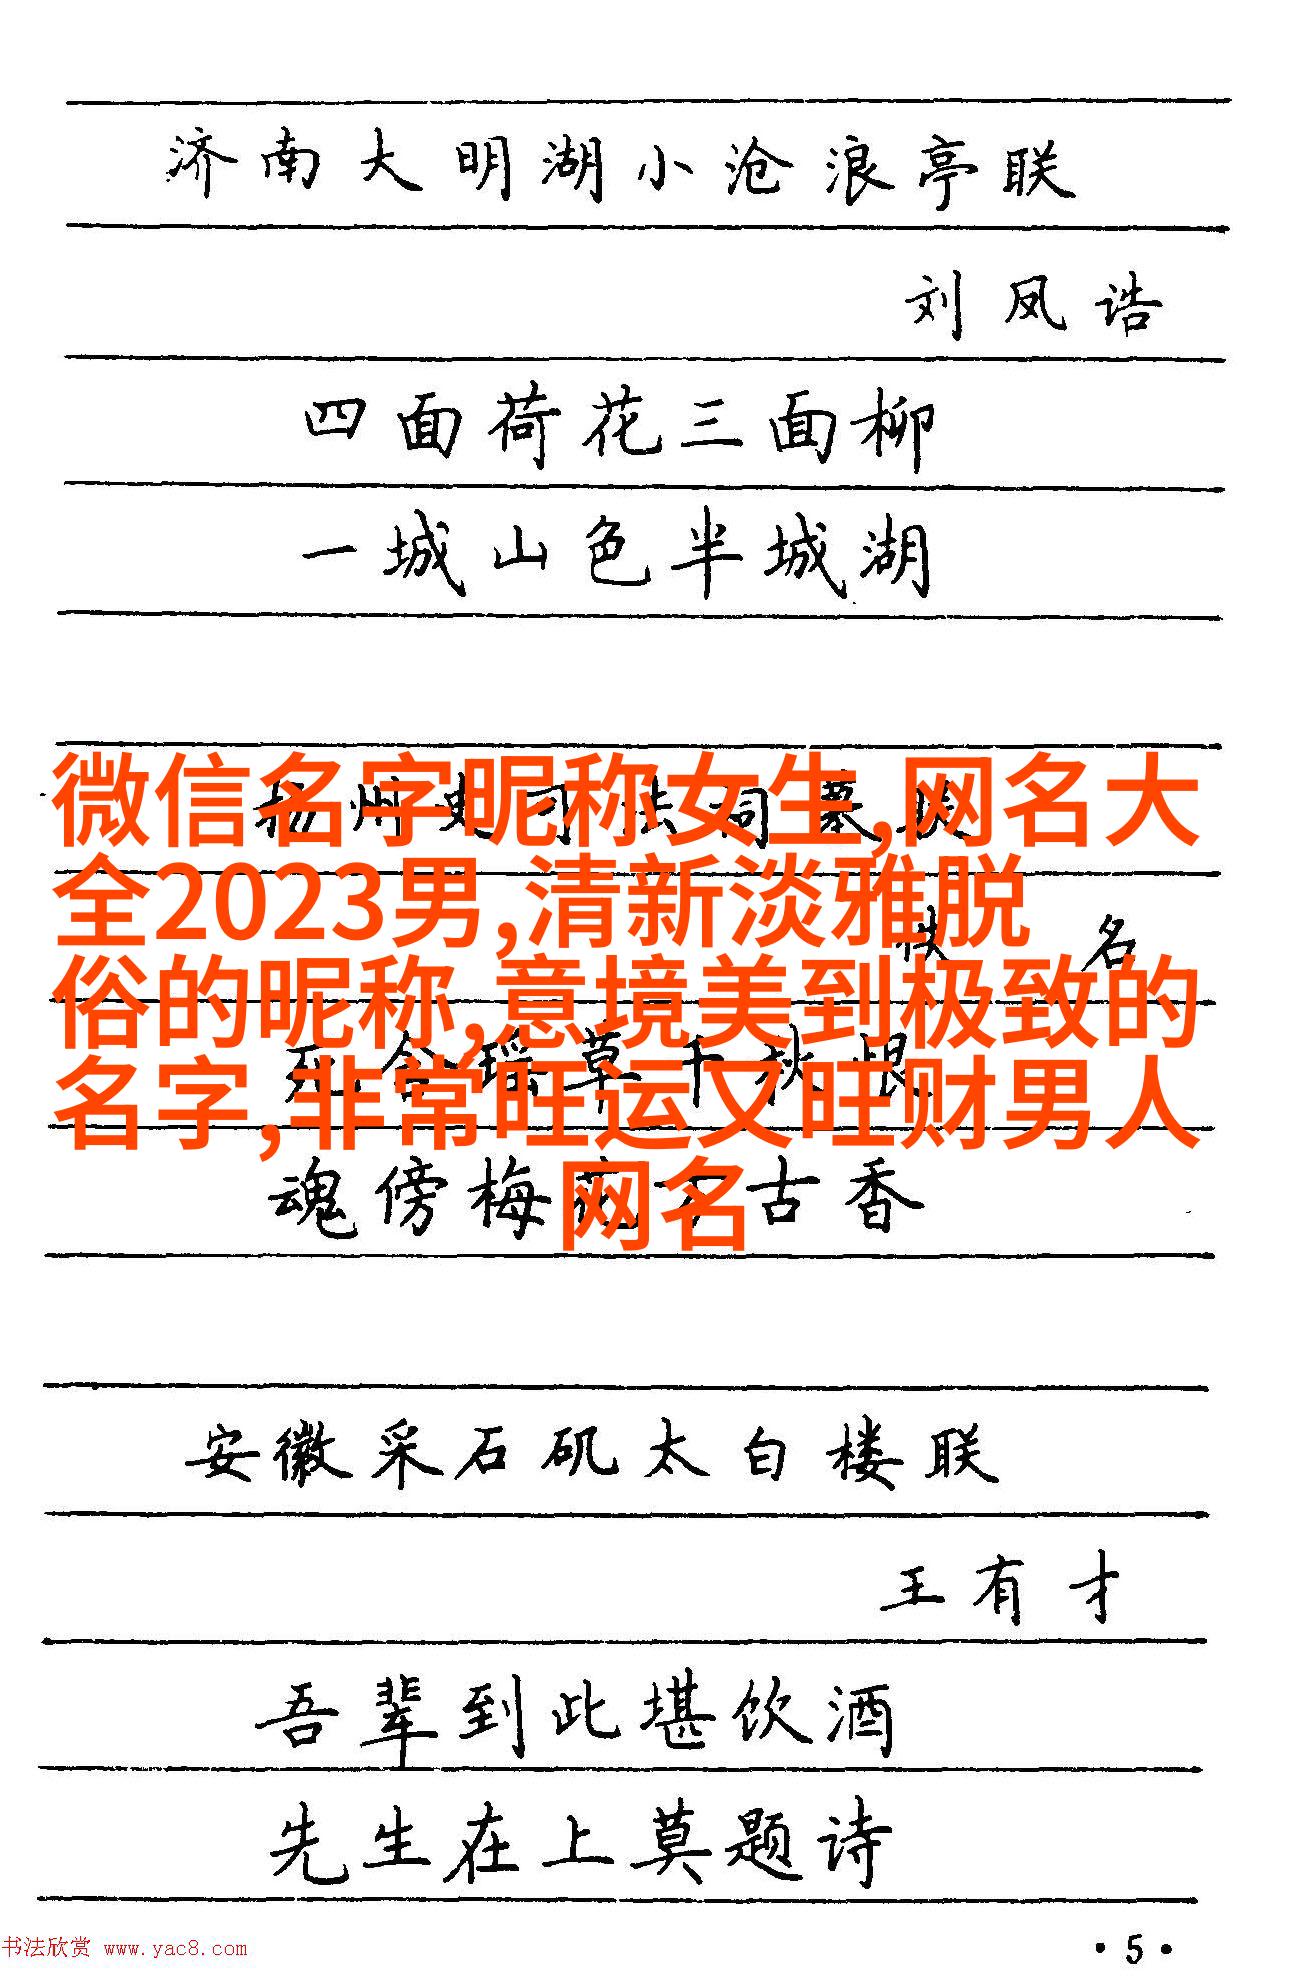 济南大明湖小沧浪亭联
刘凤诰
四面荷花三面柳
一城山色半城湖
微信名字昵称女生,网名大
全2023男,清新淡雅脱
俗的昵称,意境美到极致的
名字,非常旺运又旺财男人
网名
名
魂傍梅花 古香
安徽采石矶太白楼联
王有才
吾辈到此堪饮酒
先生在上莫题诗
书法欣赏 www.yac8.com
·5·